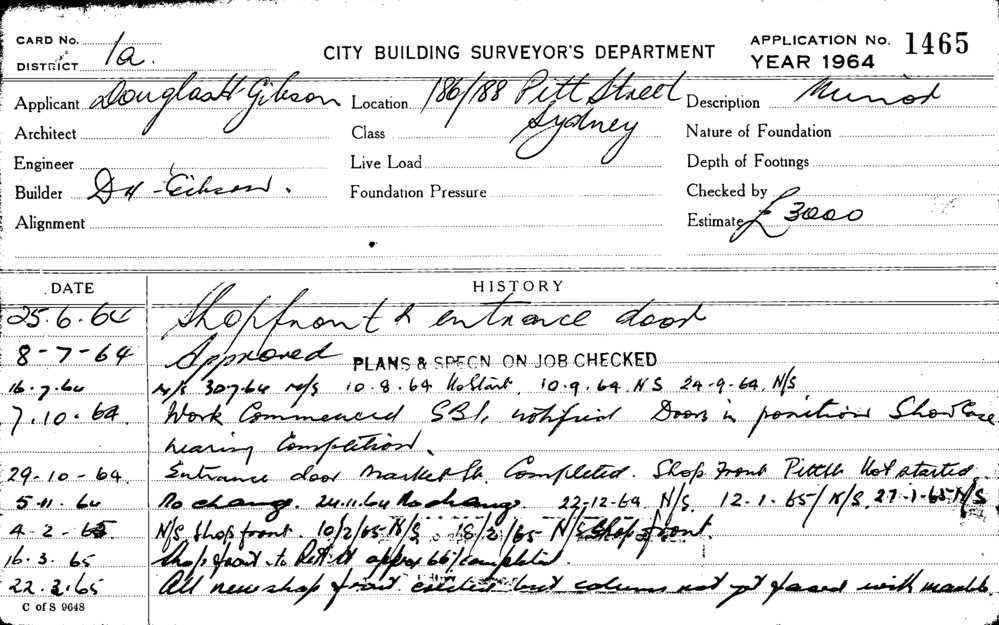 CARD No.
DISTRICT 1a.
CITY BUILDING SURVEYOR'S DEPARTMENT
APPLICATION No. 1465
YEAR 1964
Applicant Douglas H Gibson Location 186/188 Pitt Street Description Minor
Sydney
Architect Class Nature of Foundation
Engineer Live Load Depth of Footings
Builder D H Gibson. Foundation Pressure Checked by
Alignment Estimate £3000
DATE HISTORY
25.6.64 Shopfront & entrance door
8-7-64 Approved PLANS & SPECN ON JOB CHECKED
16.7.64 N/S 30764 N/S 10.8.64 No Start. 10.9.64. N.S 24-9-64. N/S
7.10.64 Work Commenced SBI, notified Doors in position Show Case
nearing Completion.
29-10-64. Entrance door Market St. Completed. Shop Front Pitt St Not started
5.11.64 No change. 24.11.64 No change. 22-12-64 N/S. 12-1-65/ N/S 27-1-65 N/S
4-2-65 N/S Shop front. 10/2/65 N/S 18/2/65 N/S Shop front.
16.3.65 Shop front to Pitt St approx 66% completed.
22.3.65 All new shop front erected but column not yet faced with marble.
C of S 9648